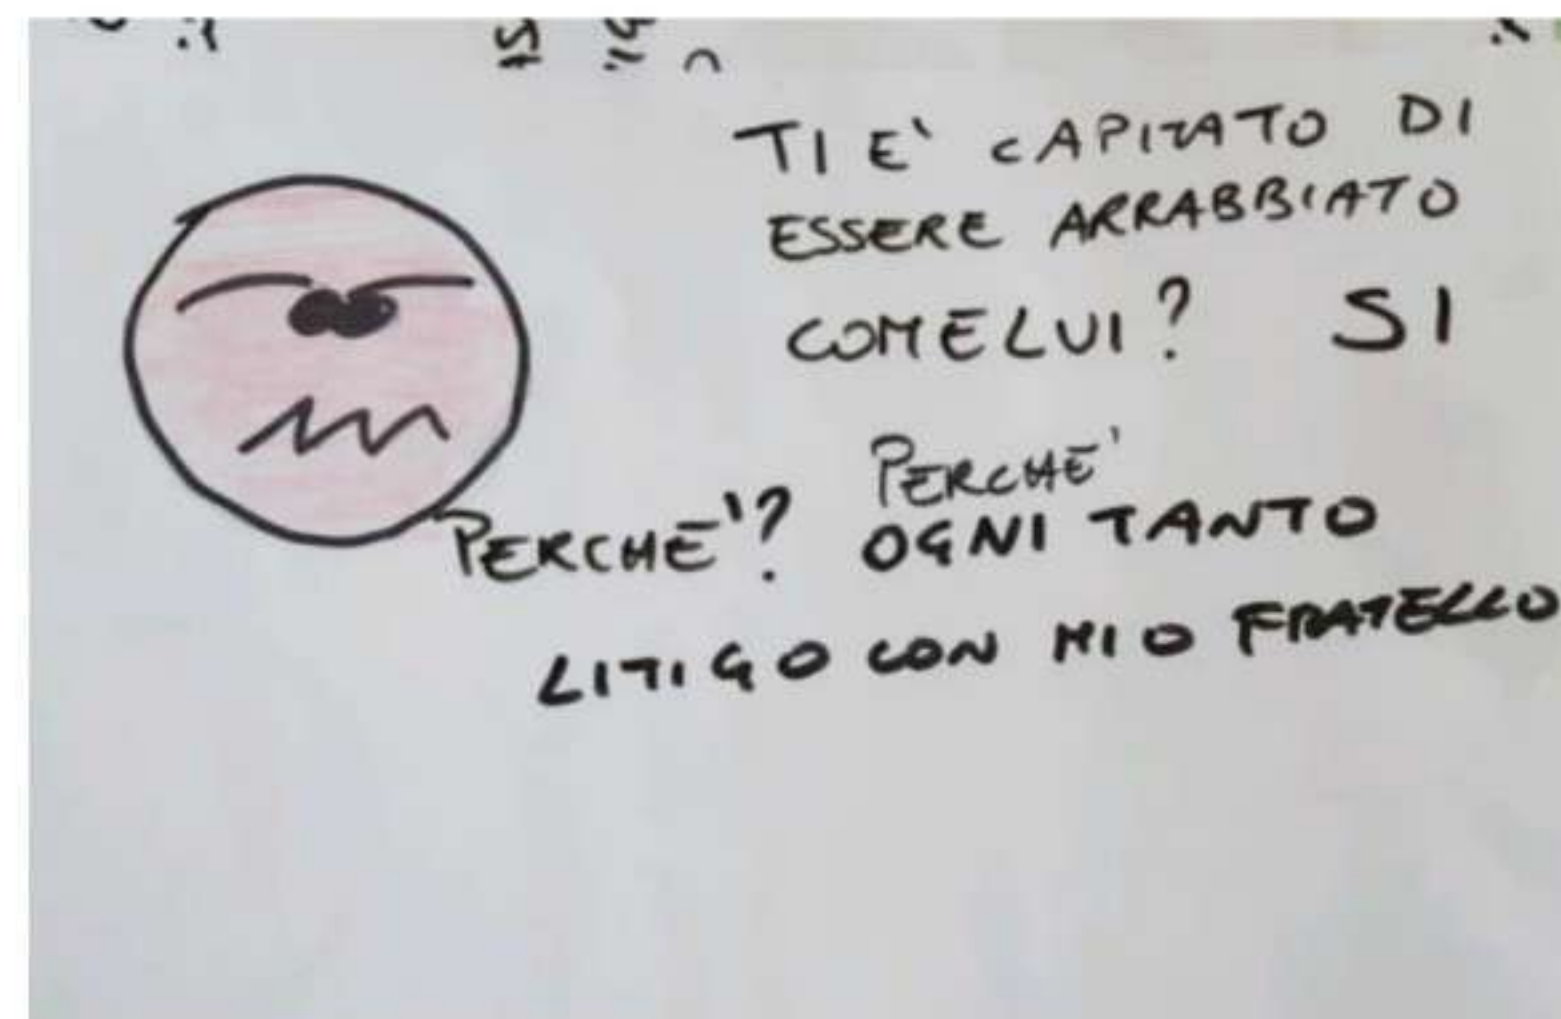 TI E' CAPITATO DI
ESSERE ARRABBIATO
COME LUI? SI
PERCHE'
PERCHE'? OGNI TANTO
LITIGO CON MIO FRATELLO